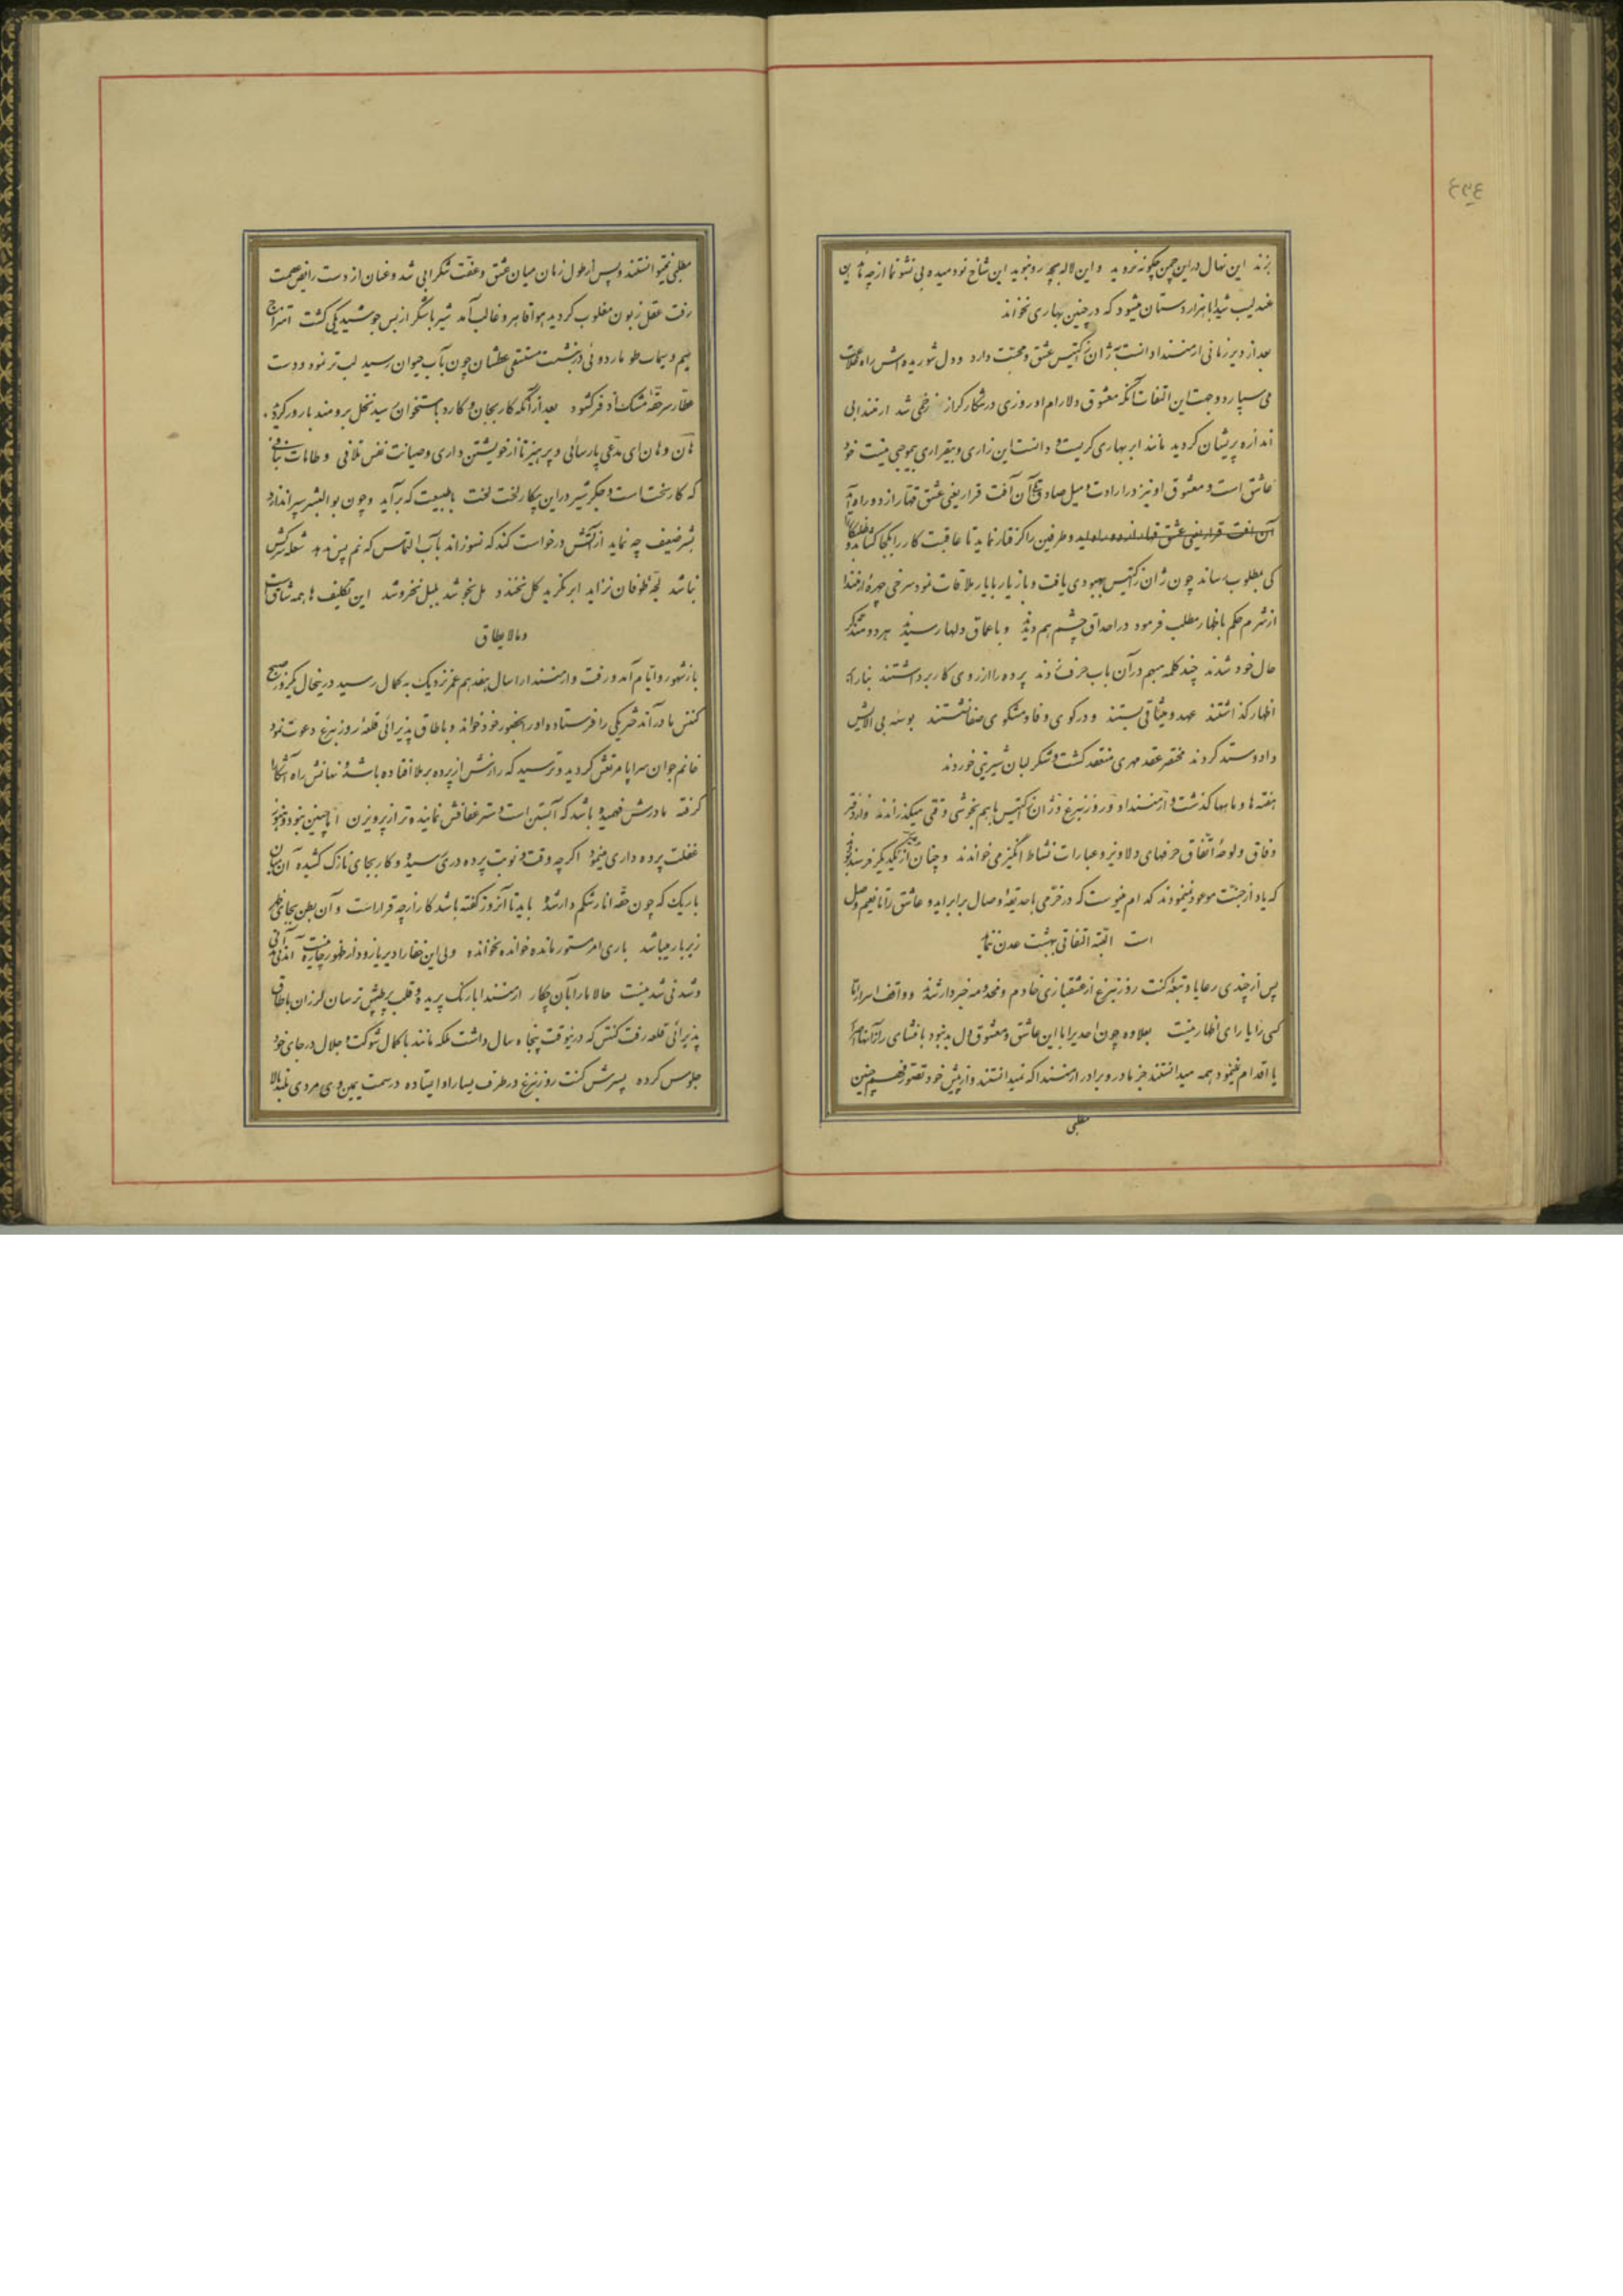 بزند این نهال در این چمن چگونه نروید و این لاله بچه رو نبوید این شاخ نودمیده بی نشو نما از چه ماند این
عندلیب شیدا با هزار دستان میشود که در چنین بهاری نخواند
بعد از دیر زمانی ارمنسندا دانست به ژان رکتیس عشق و محبت دارد و دل شوریده‌اش راه ملامت
می سپارد و جهت این التفات آنکه معشوق دلارام او روزی در شکار گراز زخمی شد ارمنسندا بی
اندازه پریشان گردید مانند ابر بهاری گریست و دانست این زاری و بیقراری بیموجبی نیست خود
عاشق است و معشوق او نیز در ارادت و میل صادق آن آفت قرار یعنی عشق قهار از دو راه آمد
آن آفت قرار یعنی عشق قهار از دو راه آمد و طرفین را گرفتار نماید تا عاقبت کار را بکجا کشاند و
کی بمطلوب رساند چون ژان رکتیس بهبودی یافت و باز یار با یار ملاقات نمود سرخی چهره ارمنسندا
از شرم حکم باظهار مطلب فرمود در احداق چشم هم دیدند و باعماق دلها رسیدند هر دو متذکر
حال خود شدند چند کلمه مبهم در آن باب حرف زدند پرده را از روی کار برداشتند بنا را به
اظهار گذاشتند عهد و میثاقی بستند و در کوی وفا و مشکوی صفا نشستند بوسه بی آلایش
داد و ستد کردند مختصر عقد مهری منعقد گشت و شکر لبان شیرینی خوردند
هفته ها و ماهها گذشت و ارمنسندا و روزنبرغ و ژان رکتیس باهم بخوشی وقتی میگذراندند و از دفتر
وفاق و لوحه اتفاق حرفهای دلاویز و عبارات نشاط انگیز می خواندند و چنان از یکدیگر خرسند بودند
که یاد از جنت موعود نمینمودند کدام مینوست که در خرمی با حدیقه وصال برابر آید و عاشق را تا نعیم وصل
است البته التفاتی ببهشت عدن ننماید
پس از چندی رعایا و تبعه کنت روزنبرغ از عشقبازی خادم و مخدومه خبردار شدند و واقف اسرار اما
کسی را یارای اظهار نیست بعلاوه چون احدیرا با این عاشق و معشوق دل بد نبود بافشای راز آنها
یا اقدام نمینمود همه میدانستند جز مادر و برادر ارمنسندا که نمیدانستند و از پیش خود تصور فهم چنین
مطلبی
مطلبی نمیتوانستند و پس از طول زمان میان عشق و عفت شکرابی شد و عنان از دست رایض عصمت
رفت عقل زبون مغلوب گردید هوا قاهر و غالب آمد شیر با شکر از بس جوشید یکی گشت امتزاج
سیم و سیماب طومار دوئی درنبشت مستسقی عطشان چون بآب حیوان رسید لب تر نمود و دست
عطار سر حقه مشک اذفر گشود بعد از آنکه کار بجان و کارد باستخوان رسید نخل برومند بارور گردید
هان و هان ای مدعی پارسائی و پرهیز تا از خویشتن داری و صیانت نفس نلافی و طامات نبافی
که کار سخت است و جگر شیر در این پیکار لخت لخت با طبیعت که برآید و چون بوالبشر سپر اندازد
بشر ضعیف چه نماید از آتش درخواست کند که نسوزاند بآب التماس که نم پس ندهد شعله سرکش
نباشد لجه طوفان نزاید ابر نگرید گل نخندد مل نجوشد بلبل نخروشد این تکلیف ها همه شاق است
و مالایطاق
باز شهور و ایام آمد و رفت و ارمنسندا را سال هفدهم عمر نزدیک به کمال رسید در ینحال یکروز صبح
کنتس مادر آند شریکی را فرستاده او را بحضور خود خواند و باطاق پذیرائی قلعه روزنبرغ دعوت نمود
خانم جوان سراپا مرتعش گردید و ترسید که رازش از پرده برملا افتاده باشد و نهانش راه آشکارا
گرفته مادرش فهمیده باشد که آبستن است و ستر عفافش نماینده تر از پرویزن اما چنین نبود و هنوز
غفلت پرده داری مینمود اگرچه وقت و نوبت پرده دری رسیده و کار بجای نازک کشیده آن میان
باریک که چون حقه انار شکم دار شده باید تا آنروز گفته باشد کار از چه قرار است و آن بطن بجای ظهر
زیر بار میباشد باری امر مستور مانده خوانده نخوانده ولی این خفا را دیر یا زود از ظهور چاره نیست
و شدنی شد نیست حالا ما را با آن چکار ارمنسندا با رنگ پریده و قلب پرطپش ترسان لرزان باطاق
پذیرائی قلعه رفت کنتس که درینوقت پنجاه سال داشت ملکه مانند با کمال شوکت و جلال در جای خود
جلوس کرده پسرش کنت روزنبرغ در طرف یسار او ایستاده در سمت یمین وی مردی بلند بالا